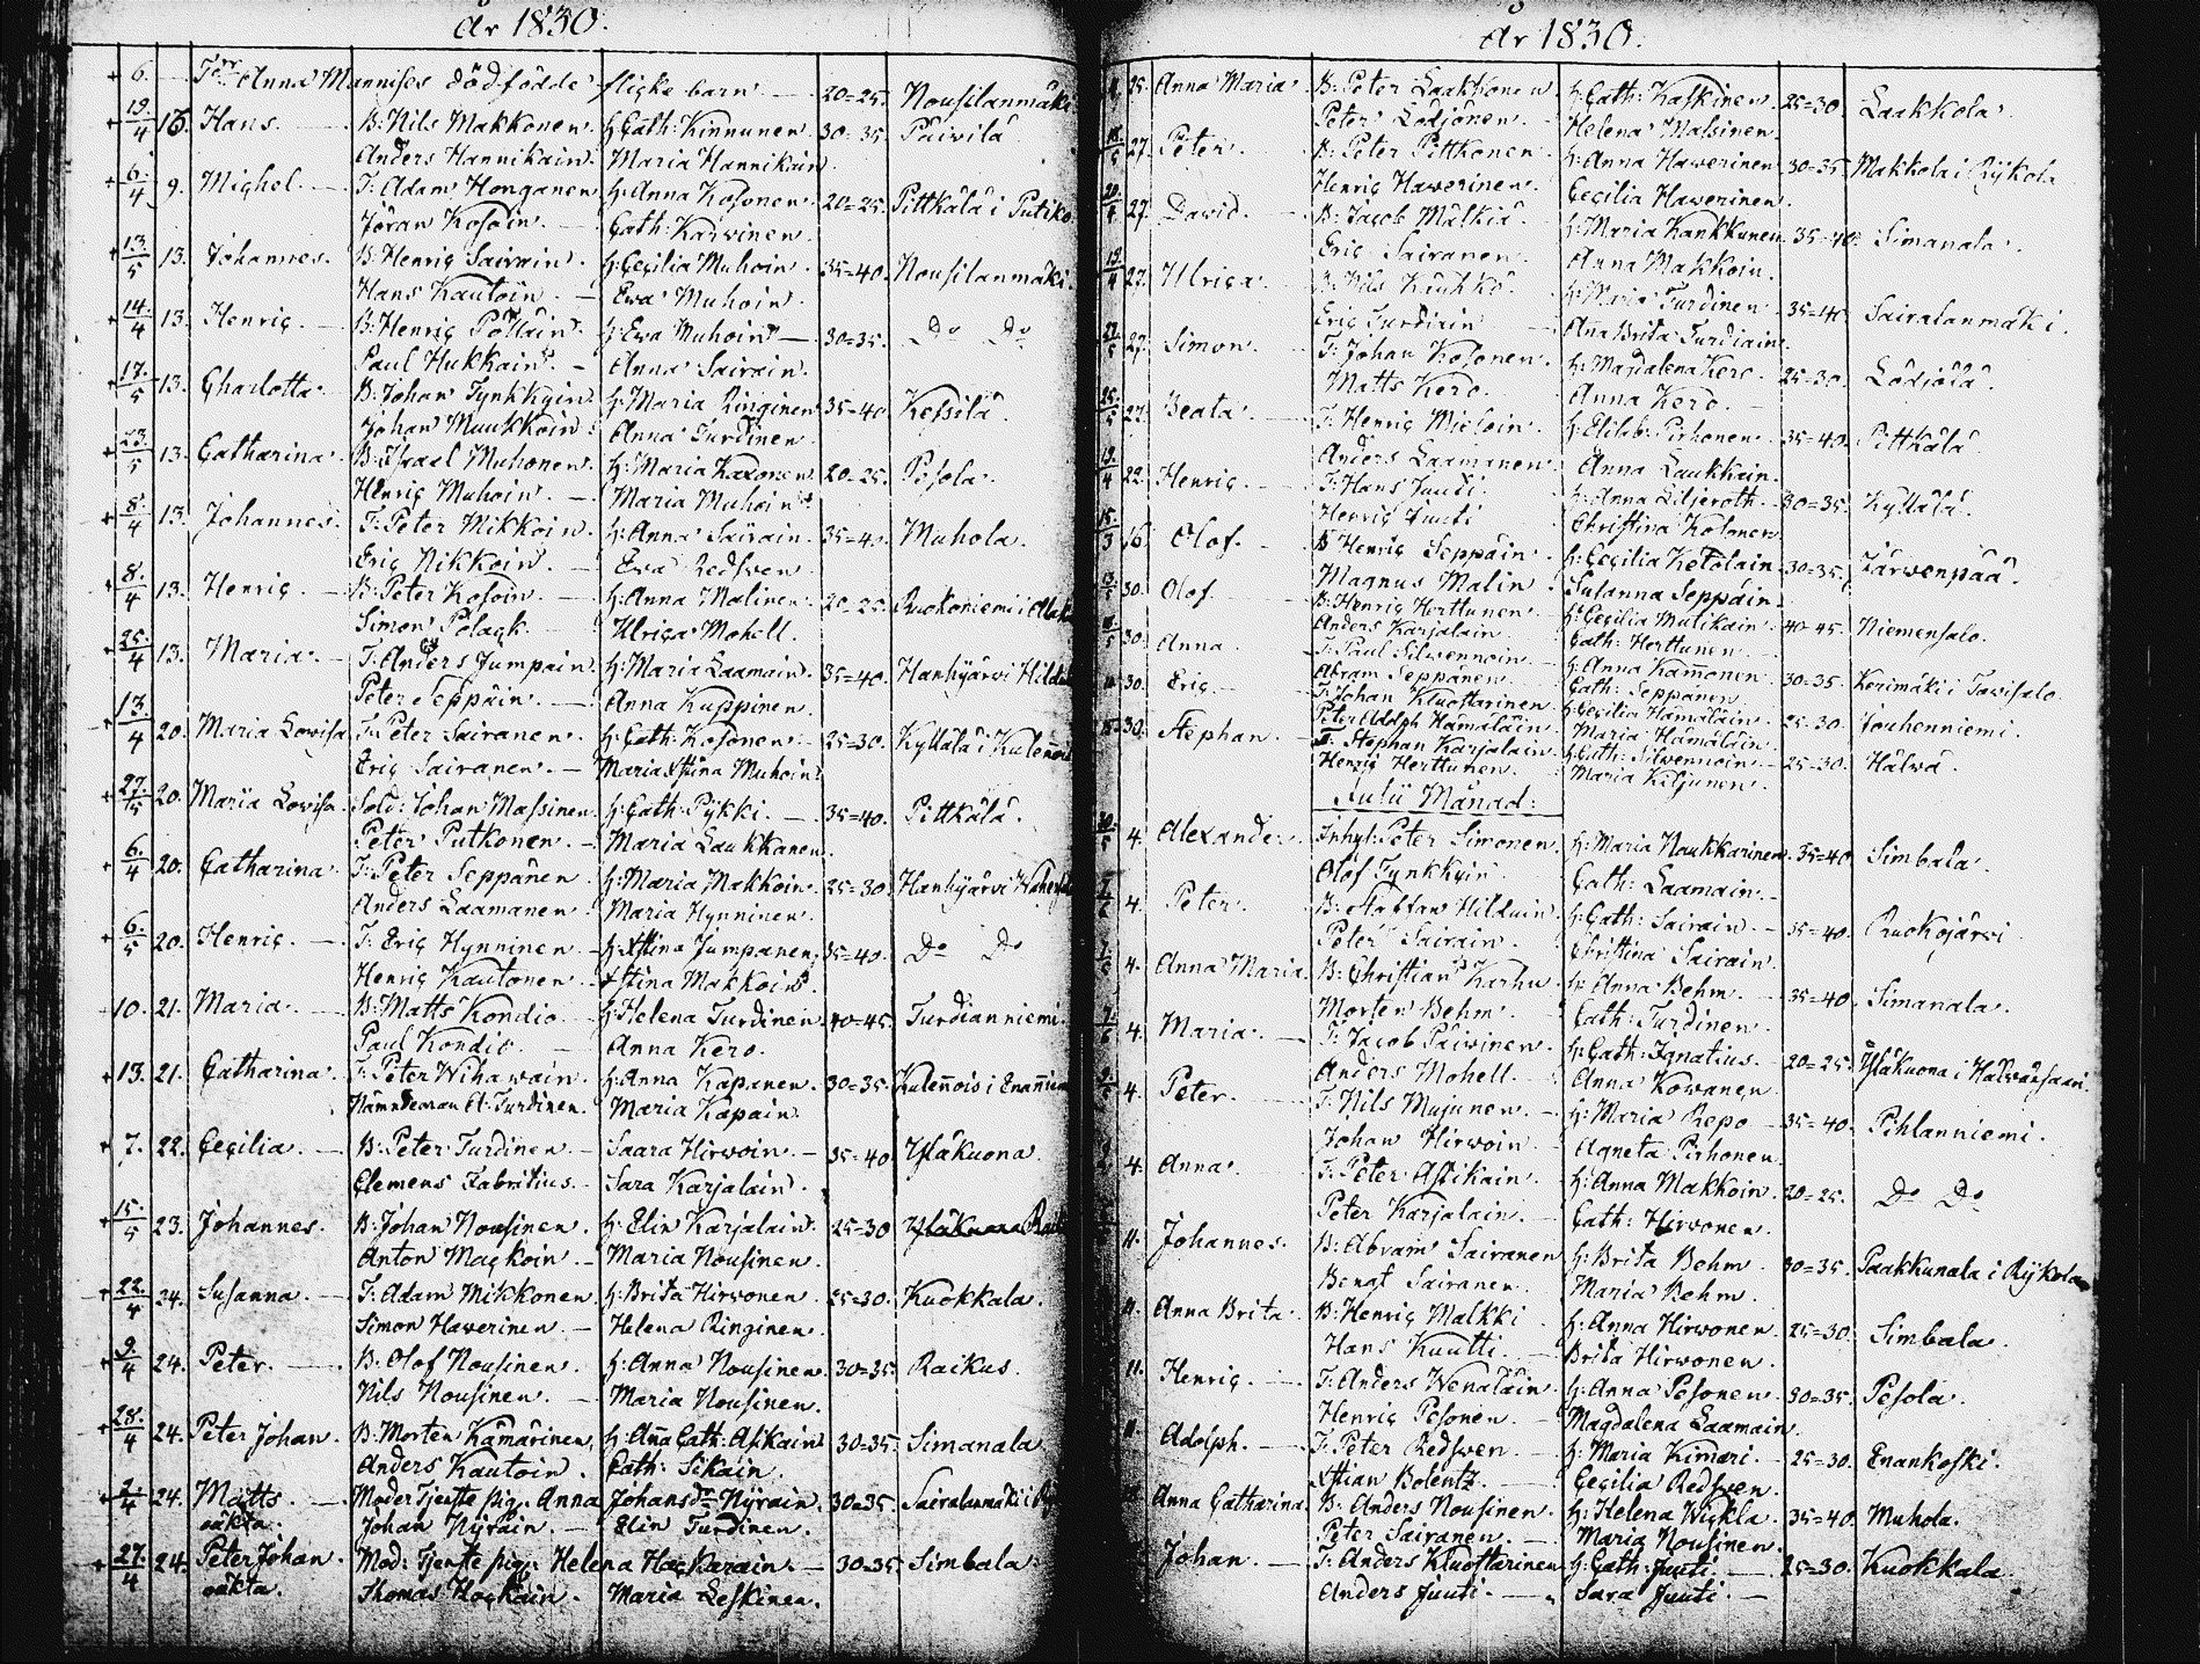 År 1830.
6. Anna Mannises dödfödde flicke barn 20=25. Nousilanmäki
19./4 16. Hans. B: Nils Makkonen. h: Cath: Kinnunen. 30=35. Päivilä
Anders Hannikain. Maria Hannikain.
6./4 9. Michel. T: Adam Honganen h: Anna Kosonen 20=25. Pittkälä i Putiko
Jöran Kosoin. Cath: Karvinen.
13./5 13. Johannes. B: Henric Sairain. h: Cecilia Muhoin. 35=40. Nousilanmäki.
Hans Kautoin. Ewa Muhoin.
14./4 13. Henric. B: Henric Pölläin. h: Ewa Muhoin 30=35. Do Do
Paul Hukkain. Anna Sairain.
17./5 13. Charlotta. B: Johan Tynkkyin h: Maria Ringinen 35=40. Kessilä
Johan Muukkoin. Anna Turdinen
23./5 13. Catharina. B: Israel Muhonen. h: Maria Kaxonen 20=25. Pesola.
Henric Muhoin. Maria Muhoin.
8./4 13. Johannes. T: Peter Mikkoin. h: Anna Sairain. 35=40. Muhola.
Eric Nikkoin. Ewa Redswen
8./4 13. Henric. B: Peter Kosoin. h: Anna Malinen. 20=25. Ruokoniemi i
Simon Polack. Ulrica Mohell.
25./4 13. Maria. T: Anders Jumpain. h: Maria Laamain. 35=40. Hanhijärvi
Peter Seppäin. Anna Kuppinen.
13./4 20. Maria Lovisa T: Peter Sairanen. h: Cath: Kosonen 25=30. Kyllälä i Kulennois
Eric Sairanen. Maria Xstina Muhoin.
27./5 20. Maria Lovisa. Sold: Johan Massinen. h: Cath: Pykki. 35=40. Pittkälä.
Peter Putkonen. Maria Laukkanen.
6./4 20. Catharina. T: Peter Seppänen h: Maria Makkoin. 25=30. Hanhijärvi
Anders Laamanen. Maria Hynninen.
6./5 20. Henric. T: Eric Hynninen h: Xstina Jumpanen. 35=40. Do Do
Henric Kautonen. Xstina Makkoin.
10. 21. Maria. B: Matts Kondio. h: Helena Turdinen 40=45. Turdianniemi.
Paul Kondio. Anna Kero.
13. 21. Catharina. T: Peter Wihawain. h: Anna Kapanen. 30=35. Kulennois i Enanniemi
Nämndeman A: Turdinen. Maria Kapain.
7. 22. Cecilia. B: Peter Turdinen. Saara Hirvoin. 35=40. Yläkuona.
Clemens Fabritius. Sara Karjalain.
15./5 23. Johannes. B: Johan Nousinen. h: Elin Karjalain. 25=30 Yläkuona
Anton Mackoin. Maria Nousinen.
22./4 24. Susanna. T: Adam Mikkonen. h: Brita Hirvonen. 25=30. Kuokkala.
Simon Haverinen. Helena Ringinen.
9./4 24. Peter. B: Olof Nousinen. h: Anna Nousinen. 30=35. Raikus.
Nils Nousinen. Maria Nousinen.
28./4 24. Peter Johan. B: Morten Kämärinen, h: Anna Cath: Asikain 30=35. Simanala
Anders Kautoin. Cath: Sikain.
2/4 24. Matts. Moder Tjenste pig. Anna Johansdr Nyräin. 30=35. Sairalanmäki i
oäkta. Johan Nyräin. Elin Turdinen.
27./4 24. Peter Johan. Mod: Tjenste pig: Helena Hackarain. 30=35. Simbala.
oäkta. Thomas Hockain. Maria Leskinen.
År 1830.
25. Anna Maria. B: Peter Laakkonen h: Cath: Kaskinen. 25=30. Laakkola.
Peter Lödjönen. Helena Massinen.
18./5 27. Peter. B: Peter Pittkonen. h: Anna Haverinen 30=35. Makkola i Rykola
Henric Haverinen. Cecilia Haverinen.
20./4 27. David. B: Jacob Mälkiä. h: Maria Kankkunen 35=40. Simanala.
Eric Sairanen. Anna Makkoin.
19./4 27. Ulrica. B: Nils Kiukko. h: Maria Turdinen 35=40 Sairalanmäki.
Eric Turdiain Anna Brita Turdiain.
27. Simon. T: Johan Kosonen. h: Magdalena Kero. 25=30. Lödjölä.
Matts Kero. Anna Kero.
25./5 27. Beata. T: Henric Mieloin. h: Elisb: Pirhonen. 35=40. Pittkälä.
Anders Laamanen. Anna Laukkain.
19./4 22. Henric. T: Hans Juuti. h: Anna Liljeroth. 30=35. Kyllälä.
Henric Juuti Christina Kosonen
15./3 16. Olof. B: Henric Seppäin. h: Cecilia Ketolain 30=35. Järvenpää.
Magnus Malin Susanna Seppäin.
13./5 30. Olof B: Henric Herttunen. h: Cecilia Mutikain. 40=45. Niemensalo.
Anders Karjalain. Cath: Herttunen.
30. Anna. T: Paul Silvennoin. h: Anna Kammonen. 30=35. Kerimäki i Tavisalo.
Abram Seppänen. Cath: Seppänen
30. Eric. T: Johan Kluostarinen h: Cecilia Hämäläin. 25=30. Jouhenniemi.
Peter Adolph Hämäläin. Maria Hämäläin.
30. Stephan. T: Stephan Karjalain. h: Cath: Silvennoin. 25=30. Hälvä.
Henric Herttunen. Maria Kiljunen.
Julii Månad:
30./5 4. Alexander. Inhys: Peter Simonen. h: Maria Naukkarinen. 35=40 Simbala.
Olof Tynkkyin Cath: Laamain.
4. Peter. B: Staffan Hilduin. h: Cath: Sairain. 35=40. Ruokojärvi
Peter Sairain. Christina Sairain.
4. Anna Maria. B: Christian Karhu. h: Anna Behm. 35=40. Simanala.
Morten Behm. Cath: Turdinen.
4. Maria. T: Jacob Päivinen. h: Cath: Ignatius. 20=25. Yläkuona i Hälvänsaari.
Anders Mohell. Anna Kowanen
4. Peter. T: Nils Mujunen. h: Maria Repo 35=40. Pihlanniemi.
Johan Hirvoin Agneta Pirhonen.
4. Anna. T: Peter Asikain. h: Anna Makkoin. 20=25. Do Do
Peter Karjalain. Cath: Hirvonen.
11. Johannes. B: Abram Sairanen h: Brita Behm. 30=35. Paakkunala i Rykola
Bengt Sairanen. Maria Behm.
11. Anna Brita. B: Henric Malkki h: Anna Hirvonen. 25=30. Simbala.
Hans Kuutti. Brita Hirvonen.
11. Henric. T: Anders Wenäläin. h: Anna Pesonen. 30=35. Pesola.
Henric Pesonen. Magdalena Laamain.
11. Adolph. T: Peter Redswen. h: Maria Kimari. 25=30. Enankoski.
Xstian Bolentz. Cecilia Redswen.
Anna Catharina. B: Anders Nousinen. h: Helena Wickla. 35=40. Muhola.
Peter Sairanen. Maria Nousinen.
Johan. T: Anders Kluostarinen h: Cath: Juuti. 25=30. Kuokkala.
Anders Juuti. Sara Juuti.